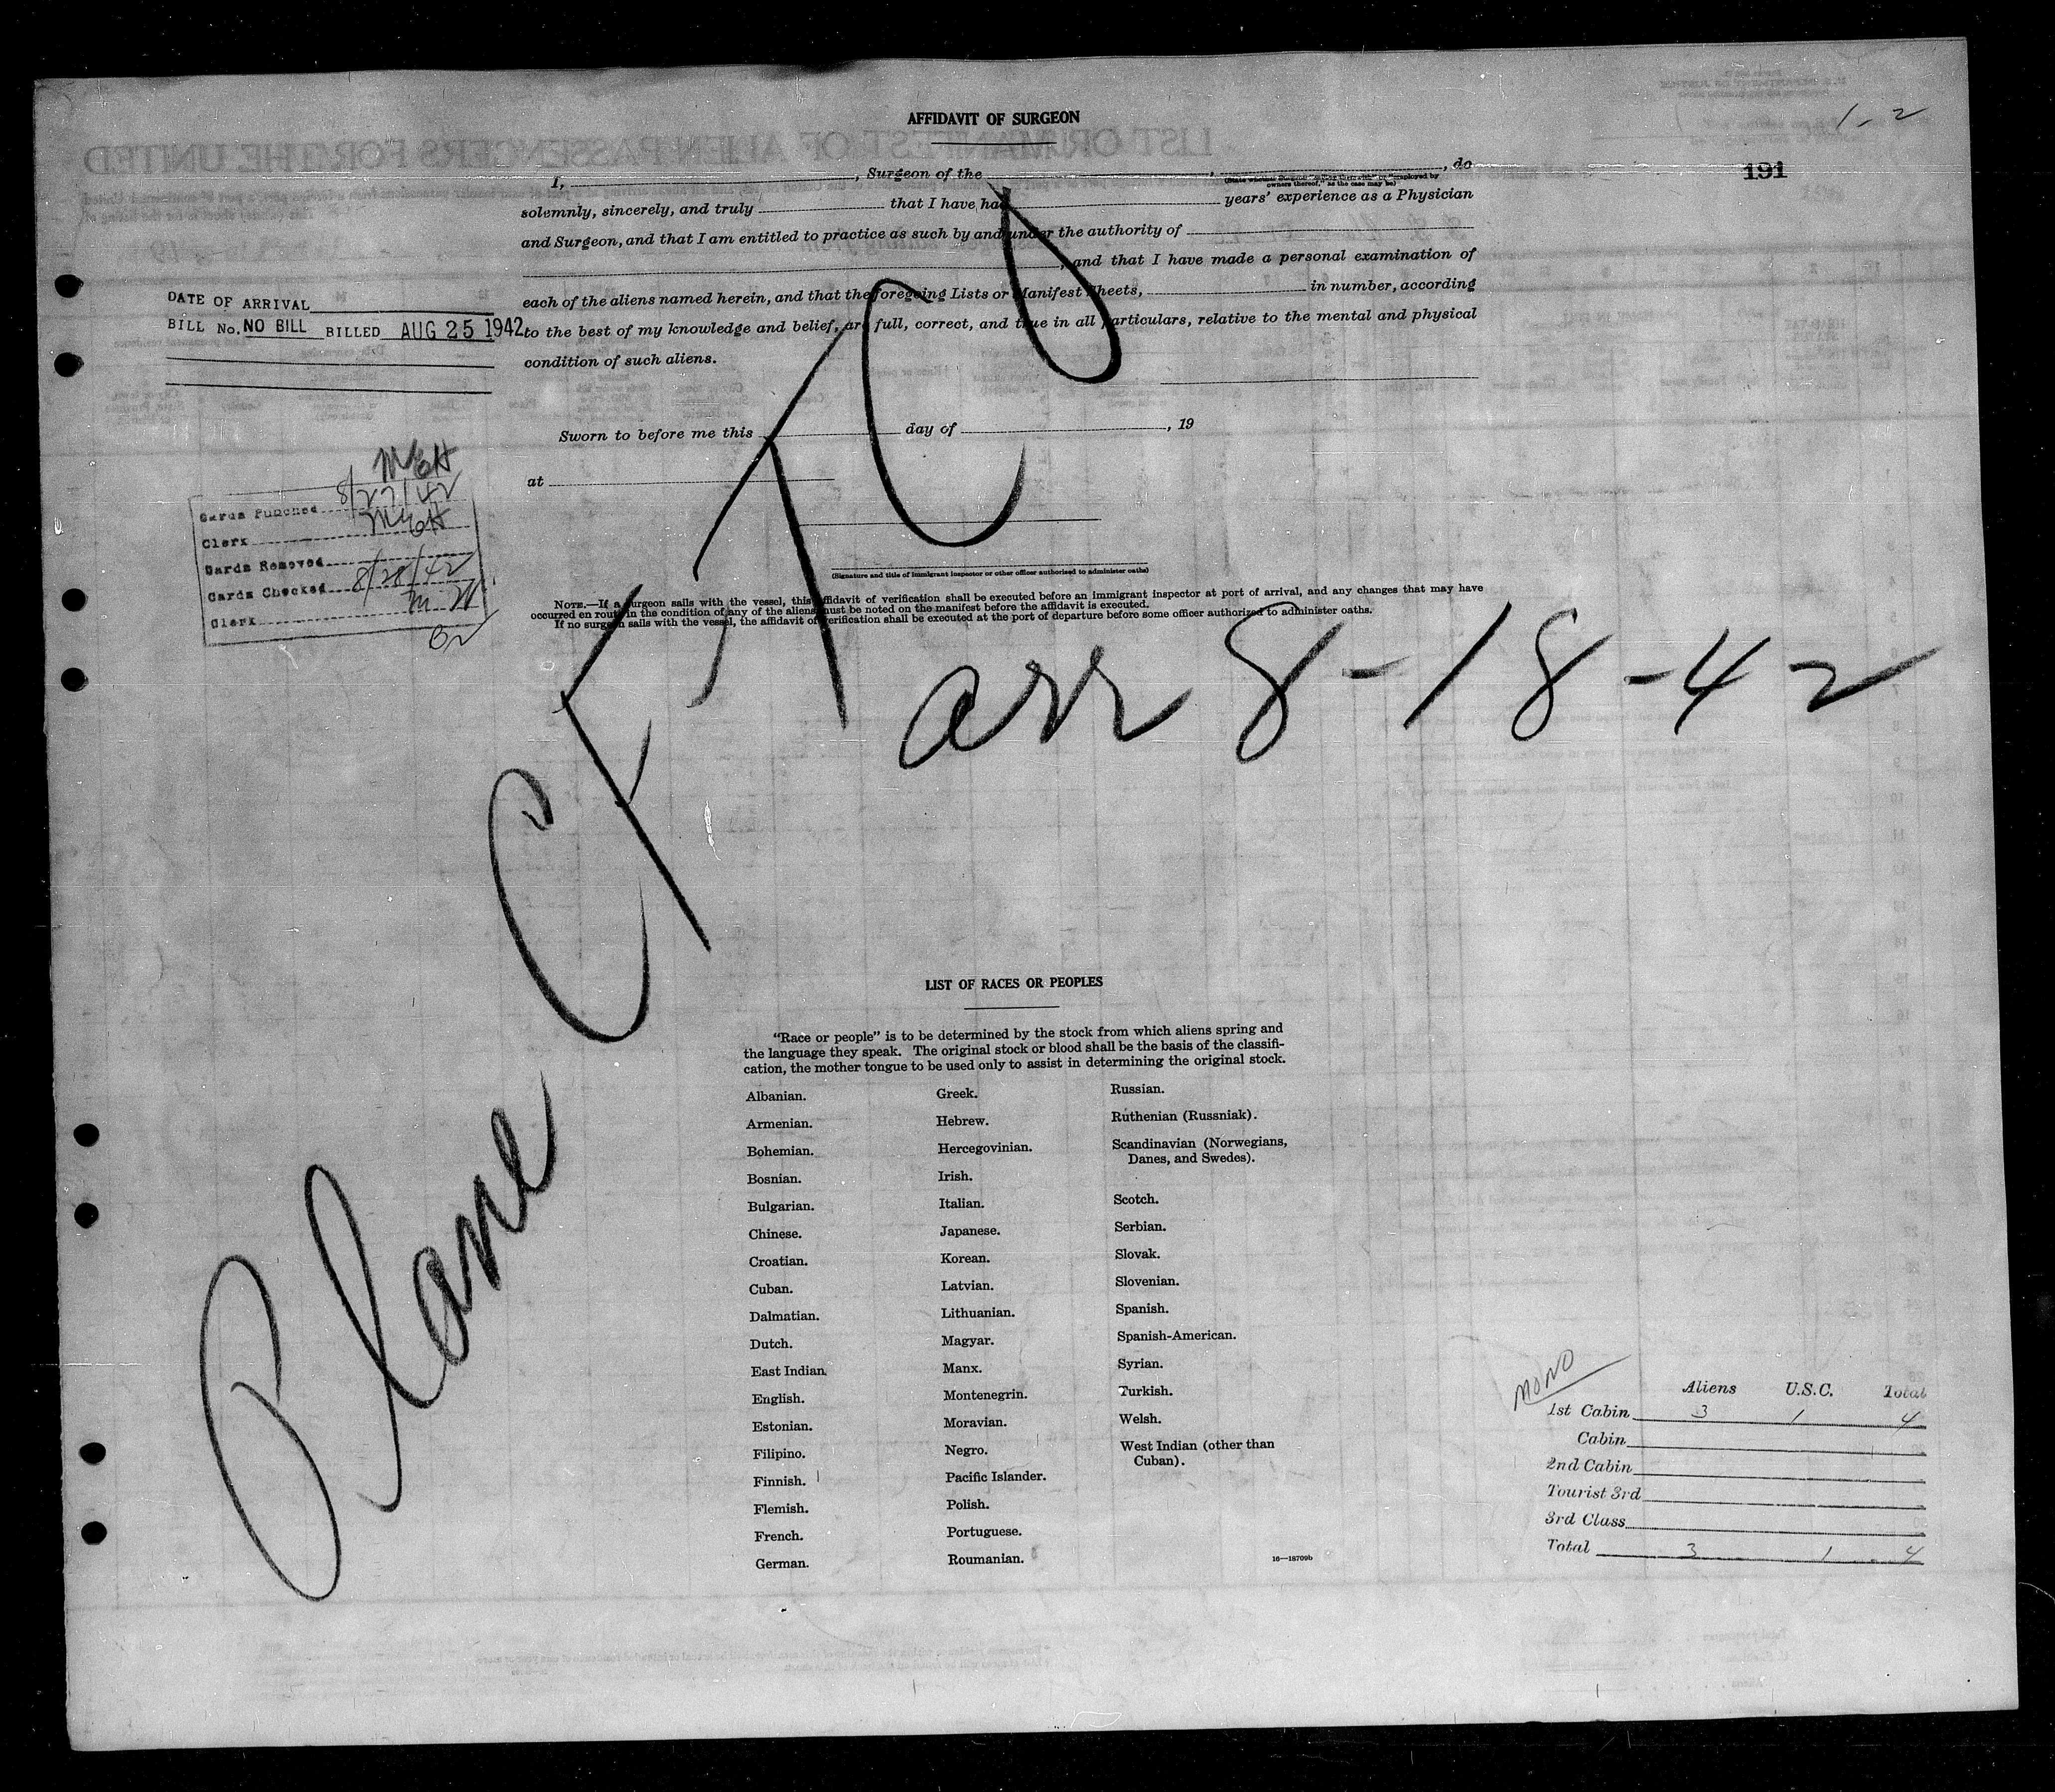 AFFIDAVIT OF SURGEON
1-2
191
I, , Surgeon of the , , do
(State whether Surgeon "sailing therewith" or "employed by owners thereof," as the case may be)
solemnly, sincerely, and truly that I have had years' experience as a Physician
and Surgeon, and that I am entitled to practice as such by and under the authority of
, and that I have made a personal examination of
each of the aliens named herein, and that the foregoing Lists or Manifest Sheets, in number, according
to the best of my knowledge and belief, are full, correct, and true in all particulars, relative to the mental and physical
condition of such aliens.
Sworn to before me this day of , 19
at
(Signature and title of immigrant inspector or other officer authorized to administer oaths)
NOTE.—If a surgeon sails with the vessel, this affidavit of verification shall be executed before an immigrant inspector at port of arrival, and any changes that may have
occurred en route in the condition of any of the aliens must be noted on the manifest before the affidavit is executed.
If no surgeon sails with the vessel, the affidavit of verification shall be executed at the port of departure before some officer authorized to administer oaths.
DATE OF ARRIVAL
BILL No. NO BILL BILLED AUG 25 1942
Cards Punched 8/27/42
Clerk
Cards Removed
Cards Checked 8/28/42
Clerk
Plane
arr 8-18-42
LIST OF RACES OR PEOPLES
"Race or people" is to be determined by the stock from which aliens spring and
the language they speak. The original stock or blood shall be the basis of the classifi-
cation, the mother tongue to be used only to assist in determining the original stock.
Albanian.
Armenian.
Bohemian.
Bosnian.
Bulgarian.
Chinese.
Croatian.
Cuban.
Dalmatian.
Dutch.
East Indian.
English.
Estonian.
Filipino.
Finnish.
Flemish.
French.
German.
Greek.
Hebrew.
Hercegovinian.
Irish.
Italian.
Japanese.
Korean.
Latvian.
Lithuanian.
Magyar.
Manx.
Montenegrin.
Moravian.
Negro.
Pacific Islander.
Polish.
Portuguese.
Roumanian.
Russian.
Ruthenian (Russniak).
Scandinavian (Norwegians,
Danes, and Swedes).
Scotch.
Serbian.
Slovak.
Slovenian.
Spanish.
Spanish-American.
Syrian.
Turkish.
Welsh.
West Indian (other than
Cuban).
16—18709b
MONO
Aliens U.S.C. Total
1st Cabin 3 1 4
Cabin
2nd Cabin
Tourist 3rd
3rd Class
Total 3 1 4